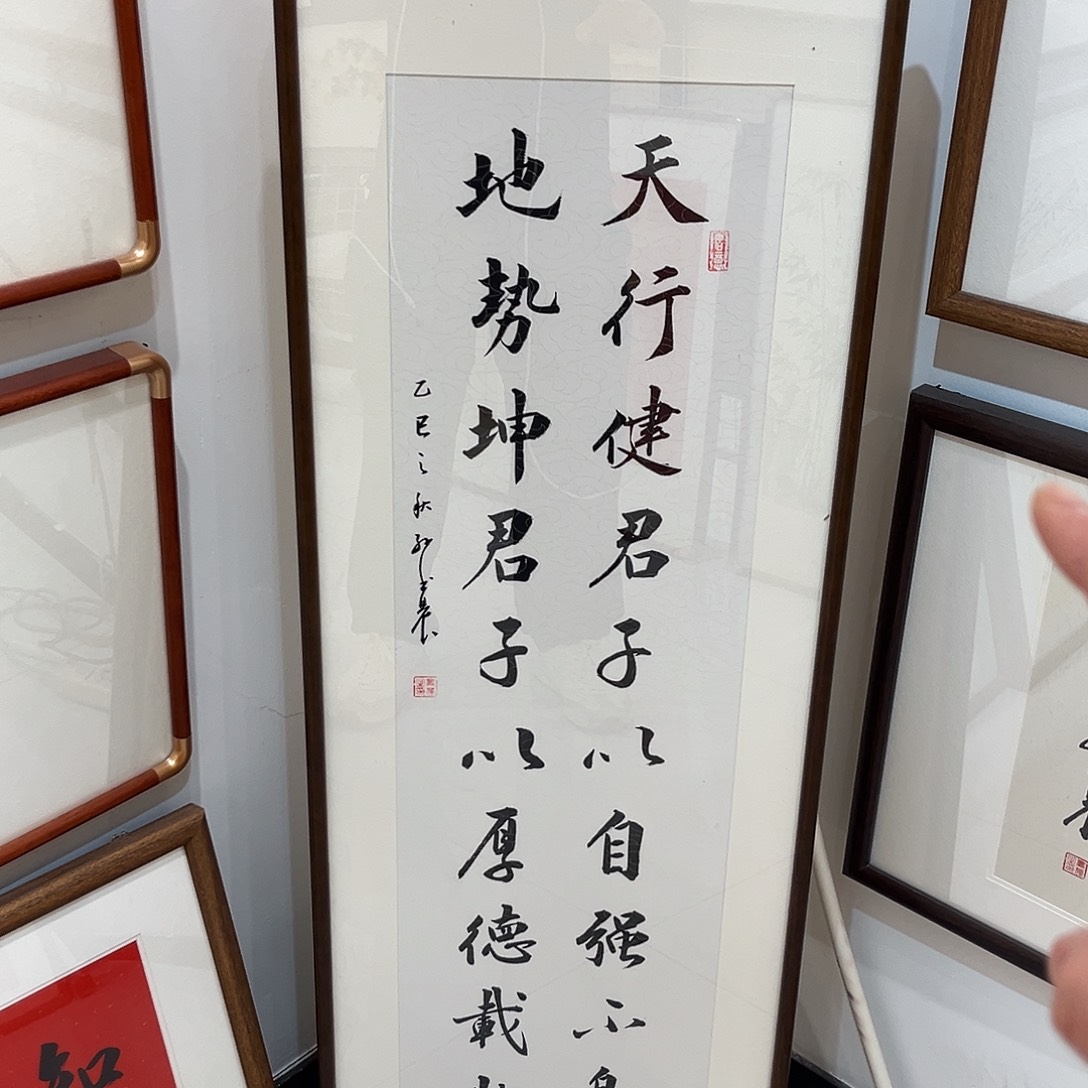 天行健君子以自强不息
地势坤君子以厚德载
乙巳之秋
知